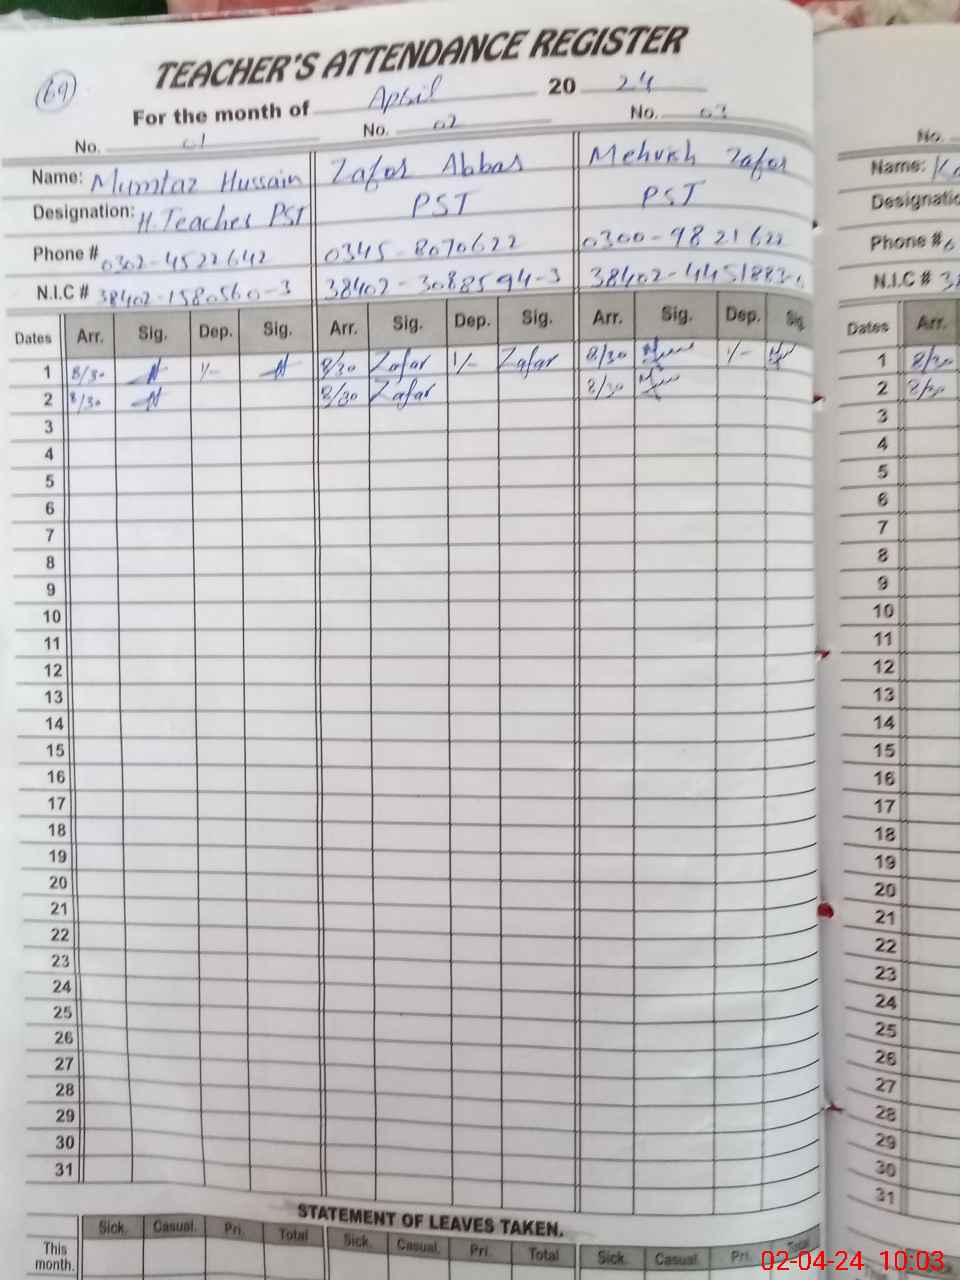 TEACHER'S ATTENDANCE REGISTER
69
For the month of April 20 24
No. 01 No. 02 No. 03
Name: Mumtaz Hussain Zafar Abbas Mehvish Zafar
Designation: H.Teacher PST PST PST
Phone # 0302-4522642 0345-8070622 0300-9821622
N.I.C # 38402-1580560-3 38402-3088594-3 38402-4451883-
Dates Arr. Sig. Dep. Sig. Arr. Sig. Dep. Sig. Arr. Sig. Dep. Sig.
1 8/30 1/- 8/30 Zafar 1/- Zafar 8/30 1/-
2 8/30 8/30 Zafar 8/30
3
4
5
6
7
8
9
10
11
12
13
14
15
16
17
18
19
20
21
22
23
24
25
26
27
28
29
30
31
STATEMENT OF LEAVES TAKEN.
Sick. Casual. Pri. Total Sick. Casual. Pri. Total Sick. Casual. Pri. Total
This month.
No.
Name:
Phone #
N.I.C #
Dates Arr.
1 8/30
2 8/30
3
4
5
6
7
8
9
10
11
12
13
14
15
16
17
18
19
20
21
22
23
24
25
26
27
28
29
30
31
02-04-24 10:03